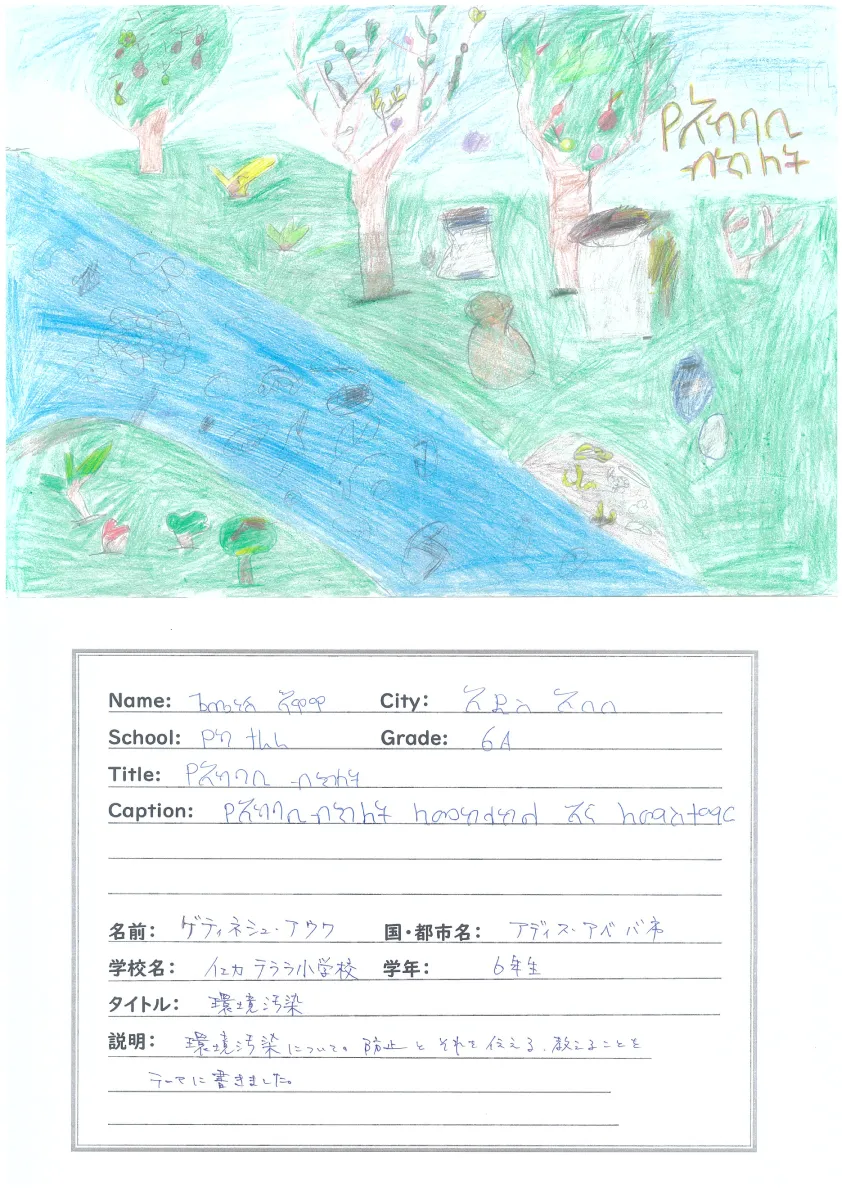 የአካባቢ
ብክለት
Name:
City: አዲስ አበባ
School: የካ
Grade: 6A
Title: የአካባቢ ብክለት
Caption: የአካባቢ ብክለት ለመከላከል እና ለማስተማር
名前: ゲティネシュ・アウワ
国・都市名: アディス・アベバ市
学校名: イェカ テララ小学校
学年: 6年生
タイトル: 環境汚染
説明: 環境汚染について。防止とそれを伝える、教えることを
テーマに書きました。